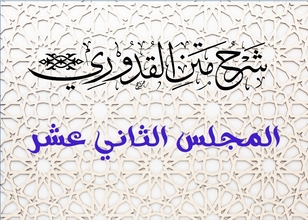 شرح متن القدوري
المجلس الثاني عشر